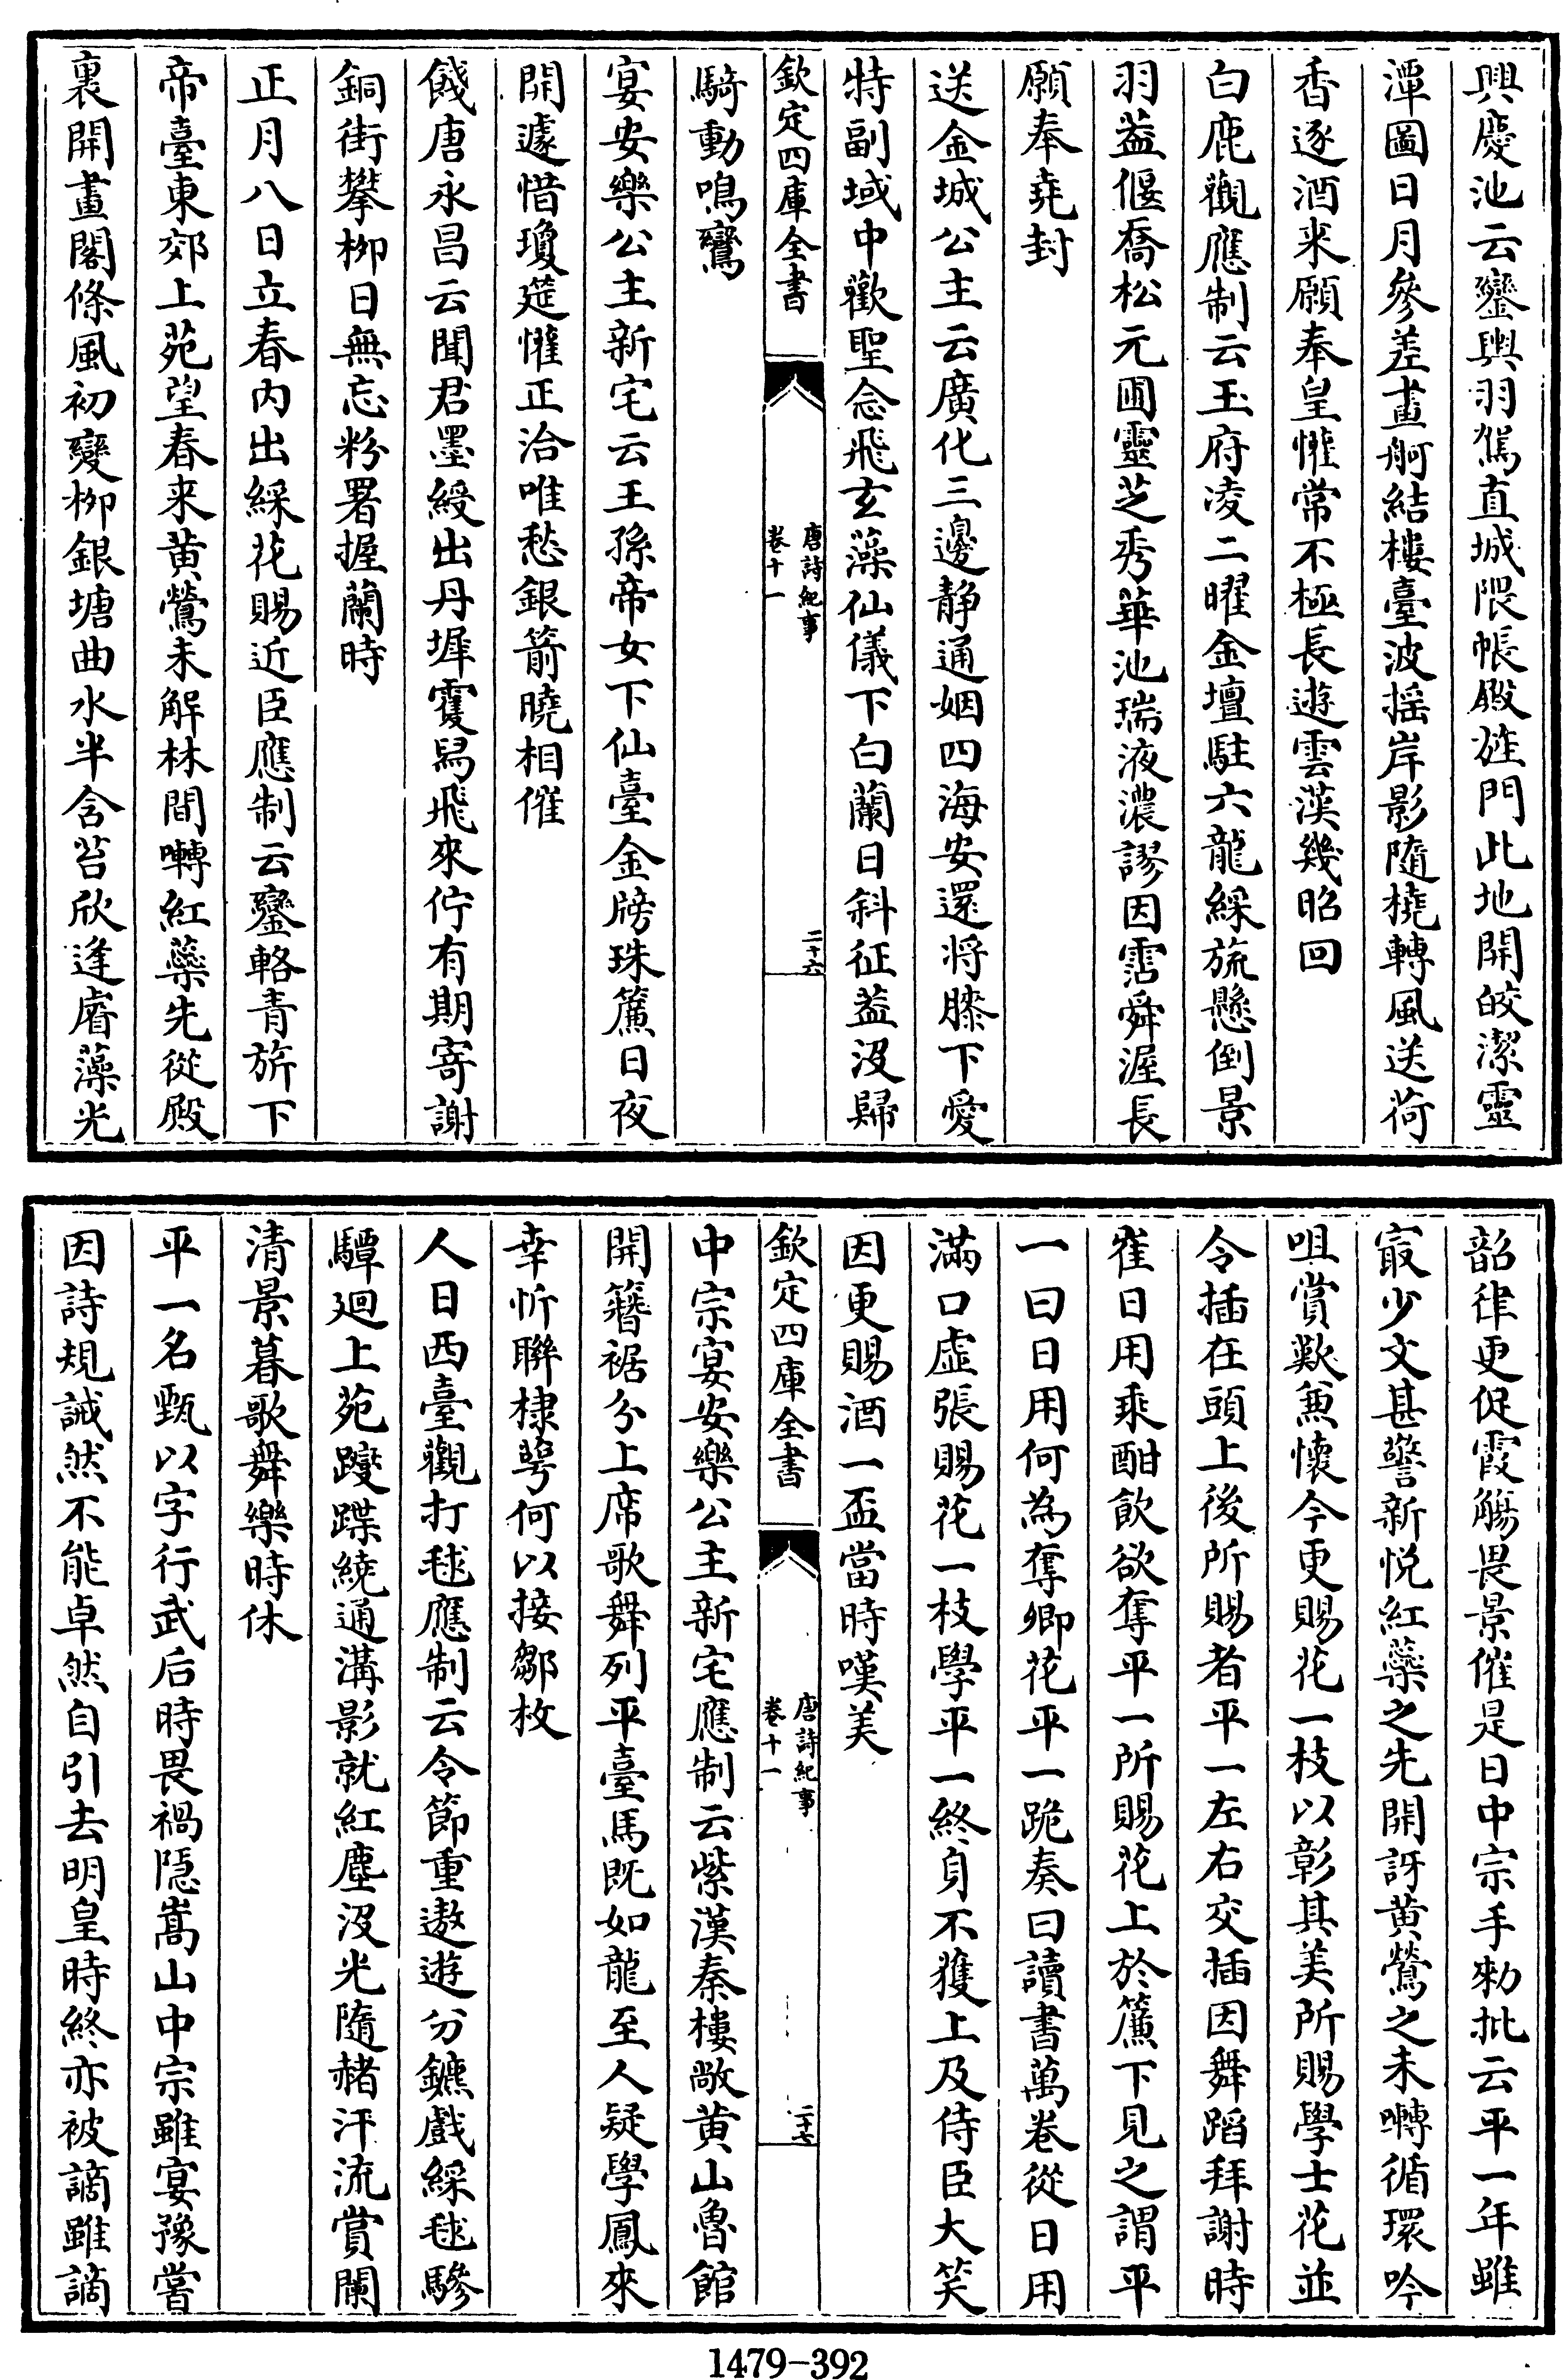 興慶池云鑾輿羽駕直城隈帳殿旌門此地開皎潔靈
潭圖日月參差畫舸結樓臺波摇岸影隨橈轉風送荷
香逐酒来願奉皇懽常不極長遊雲漢幾昭回
白鹿觀應制云玉府凌二曜金壇駐六龍綵旒懸倒景
羽葢偃喬松元圃靈芝秀華池瑞液濃謬因霑舜渥長
願奉堯封
送金城公主云廣化三邊静通姻四海安還将膝下愛
特副域中歡聖念飛玄藻仙儀下白蘭日斜征葢沒歸
欽定四庫全書
唐詩紀事
卷十一
二十六
騎動鳴鸞
宴安樂公主新宅云王孫帝女下仙臺金牓珠簾日夜
開遽惜瓊筵懽正洽唯愁銀箭曉相催
餞唐永昌云聞君墨綬出丹墀雙舄飛來佇有期寄謝
銅街攀栁日無忘粉署握蘭時
正月八日立春内出綵花賜近臣應制云鑾輅青旂下
帝臺東郊上苑望春来黄鶯未解林間囀紅蘂先從殿
裏開畫閣條風初變栁銀塘曲水半含苔欣逢睿藻光
韶律更促霞觴畏景催是日中宗手勅批云平一年雖
㝡少文甚警新悦紅蘂之先開訝黄鶯之未囀循環吟
咀賞歎兼懷今更賜花一枝以彰其美所賜學士花並
令插在頭上後所賜者平一左右交插因舞蹈拜謝時
崔日用乘酣飲欲奪平一所賜花上於簾下見之謂平
一曰日用何為奪卿花平一跪奏曰讀書萬卷從日用
滿口虛張賜花一枝學平一終身不獲上及侍臣大笑
因更賜酒一盃當時嘆美
欽定四庫全書
唐詩紀事
卷十一
二十七
中宗宴安樂公主新宅應制云紫漢秦樓敞黄山魯館
開簪裾分上席歌舞列平臺馬既如龍至人疑學鳳來
幸忻聯棣萼何以接鄒枚
人日西臺觀打毬應制云令節重遨遊分鑣戲綵毬驂
驔廻上苑躞蹀繞通溝影就紅塵沒光隨赭汗流賞闌
清景暮歌舞樂時休
平一名甄以字行武后時畏禍隱嵩山中宗雖宴豫嘗
因詩規誡然不能卓然自引去明皇時終亦被謫雖謫
1479-392